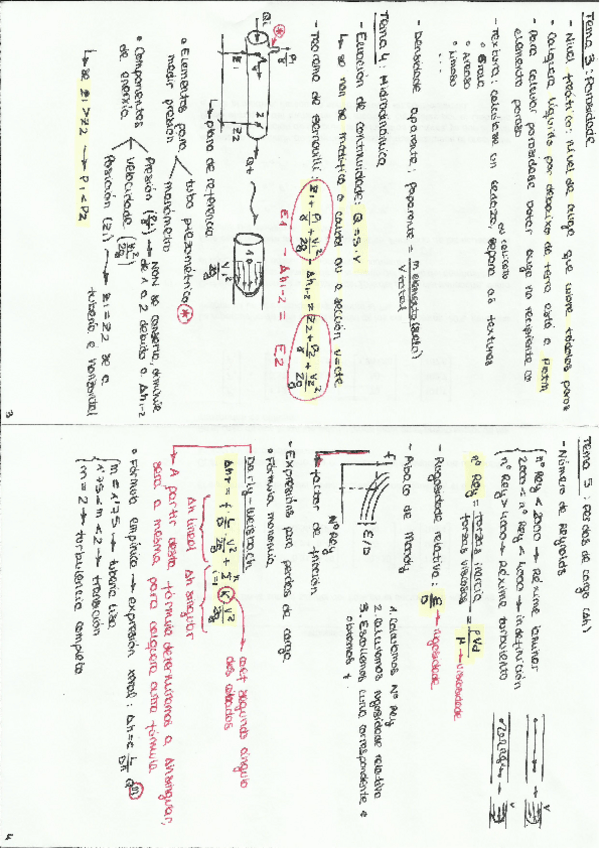 Tema 3: Porosidade
- Nivel freático: nivel de auga que une todos los poros
- Calquera líquido por debaixo de terra está a Patm
- Para calcular porosidade botar auga no recipiente co
elemento poroso
- Textura: calcúlase en secado, separa as texturas
° Grava
° Areoso
° Limoso
...
- Densidade aparente: ρaparente = m elemento (seco) / V total
Tema 4: Hidrodinámica
- Ecuación de continuidade: Q = S · V
↳ se non se modifica o caudal ou a sección V = cte
- Teorema de Bernouilli: Z1 + P1/γ + V1²/2g - Δh1-2 = Z2 + P2/γ + V2²/2g
E1 - Δh1-2 = E2
Z1
Z2
↳ plano de referencia
V1²/2g
° Elementos para medir presión
tubo piezométrico *
manómetro
° Compoñentes de enerxía
Presión (P/γ) → NON se conserva, diminúe de 1 a 2 debido a Δh1-2
Velocidade (V²/2g)
Posición (Z) → Z1 = Z2 se a tubería é horizontal
↳ se Z1 > Z2 → P1 < P2
3
Tema 5: Perdas de carga (Δh)
- Número de Reynolds
nº Rey < 2000 → Réxime laminar
2000 < nº Rey < 4000 → indefinición
nº Rey > 4000 → Réxime turbulento
nº Rey = forzas inercia / forzas viscosas = ρVd / μ → viscosidade
- Rugosidade relativa: ε/D → rugosidade
- Ábaco de Moody
1. Calculamos Nº Rey
2. Calculamos rugosidade relativa
3. Escollemos curva correspondente e
obtemos f.
f
ε/D
Nº Rey
↳ factor de fricción
- Expresións para perdas de carga
° Fórmula monomia
Darcy-Weisbach
ΔhT = f L/D V²/2g + Σ K V²/2g
Δh lineal
Δh singular
→ coef. segundo ángulo
dos cóbados
→ A partir desta fórmula determinamos a Δh singular,
será a mesma para calquera outra fórmula
° Fórmula empírica → expresión xeral: Δh = c L/Dⁿ Qᵐ
m = 1'75 → tubería lisa
1'75 < m < 2 → transición
m = 2 → turbulencia completa
4